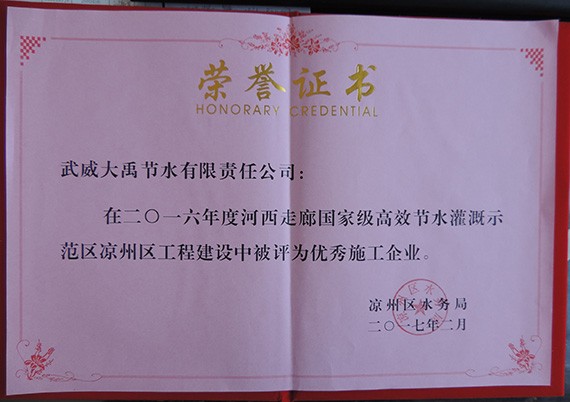 荣誉证书
HONORARY CREDENTIAL
武威大禹节水有限责任公司：
在二〇一六年度河西走廊国家级高效节水灌溉示
范区凉州区工程建设中被评为优秀施工企业。
凉州区水务局
二〇一七年二月